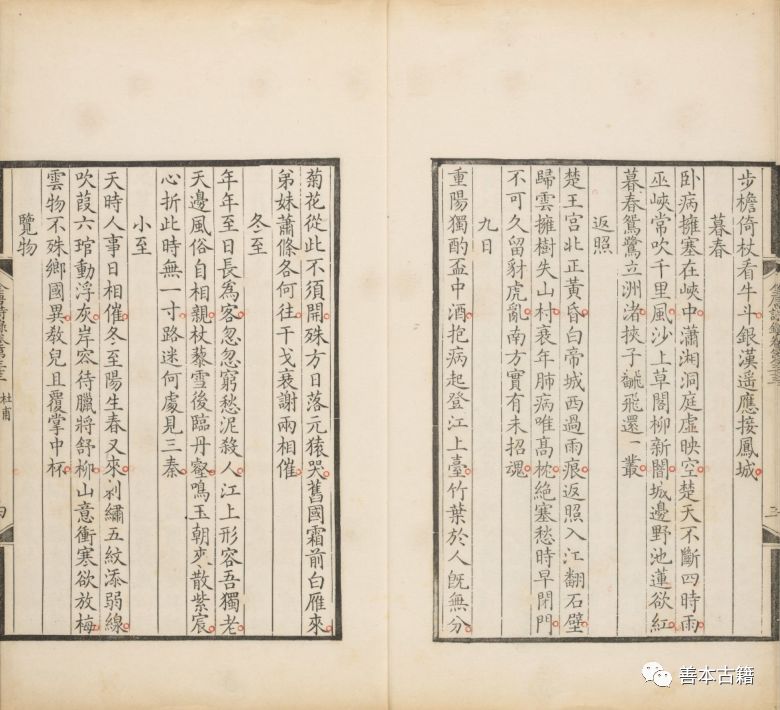 步檐倚杖看牛斗銀漢遥應接鳳城
暮春
卧病擁塞在峽中瀟湘洞庭虛映空楚天不斷四時雨
巫峽常吹千里風沙上草閣柳新闇城邊野池蓮欲紅
暮春鴛鷺立洲渚挾子翻飛還一叢
返照
楚王宮北正黃昏白帝城西過雨痕返照入江翻石壁
歸雲擁樹失山村衰年肺病唯高枕絕塞愁時早閉門
不可久留豺虎亂南方實有未招魂
九日
重陽獨酌盃中酒抱病起登江上臺竹葉於人旣無分
菊花從此不須開殊方日落元猿哭舊國霜前白雁來
弟妹蕭條各何往干戈衰謝兩相催
冬至
年年至日長為客忽忽窮愁泥殺人江上形容吾獨老
天邊風俗自相親杖藜雪後臨丹壑鳴玉朝來散紫宸
心折此時無一寸路迷何處見三秦
小至
天時人事日相催冬至陽生春又來刺繡五紋添弱線
吹葭六琯動浮灰岸容待臘將舒柳山意衝寒欲放梅
雲物不殊鄉國異敎兒且覆掌中杯
覽物
杜甫
四
三
善本古籍